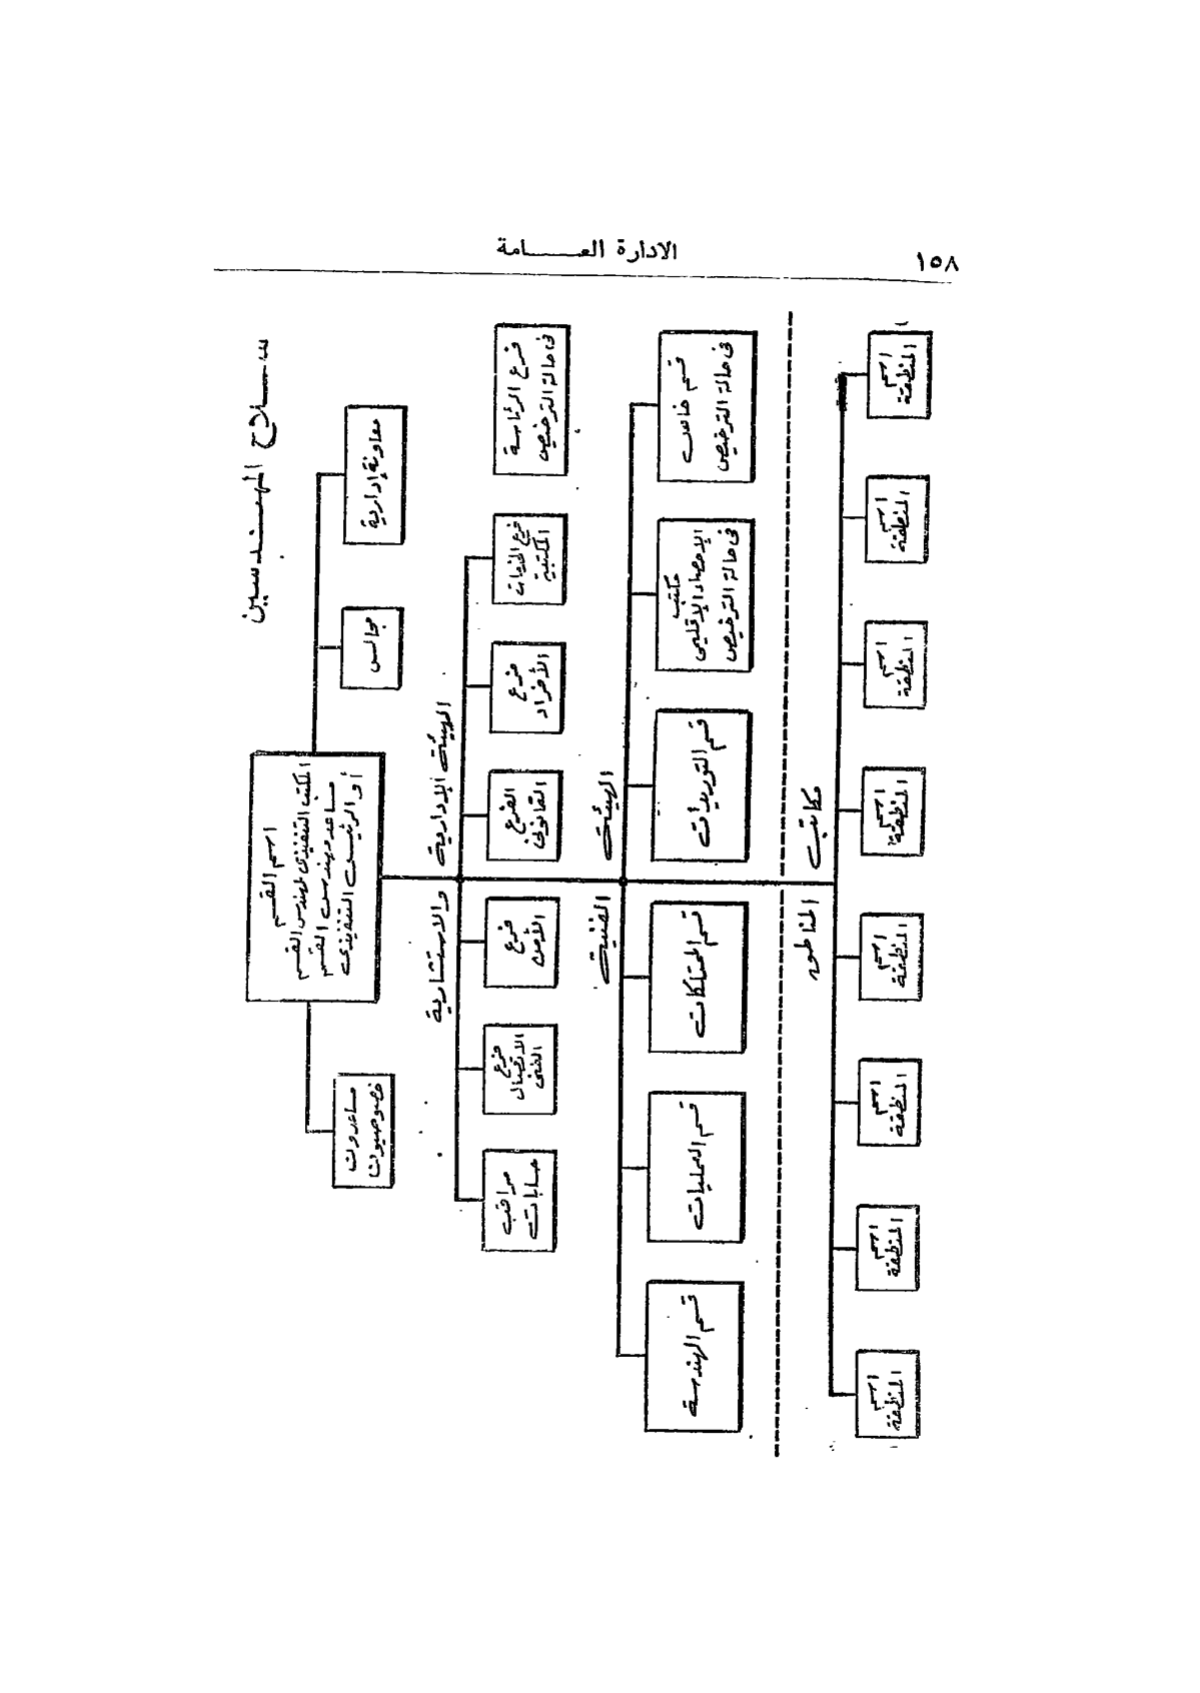 ١٥٨
الادارة العـــــامة
سـلاح المهندسين
معاونة إدارية
مجالس
اسم القسم
المكتب التنفيذى لمهندس القسم
مساعدو مهندس القسم
أو الرئيس التنفيذى
مساعدون
خصوصيون
الهيئة الإدارية
والاستشارية
فرع الرئاسة
فى حالة الترخيص
فرع الخدمات
المكتبية
فرع
الأفراد
الفرع
القانونى
فرع
الأمن
فرع
الاتصال
الفنى
مراقب
حسابات
الهيئة
الفنية
قسم خاص
فى حالة الترخيص
مكتب
الإحصاء الإقليمى
فى حالة الترخيص
قسم التوريدات
قسم الممتلكات
قسم العمليات
قسم الهندسة
مكاتب
المناطق
اسم
المنطقة
اسم
المنطقة
اسم
المنطقة
اسم
المنطقة
اسم
المنطقة
اسم
المنطقة
اسم
المنطقة
اسم
المنطقة